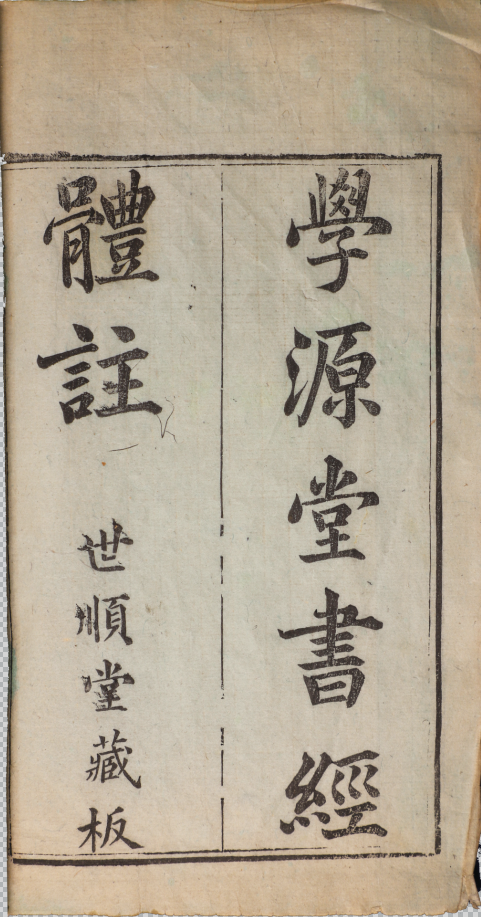 學源堂書經
體註
世順堂藏板